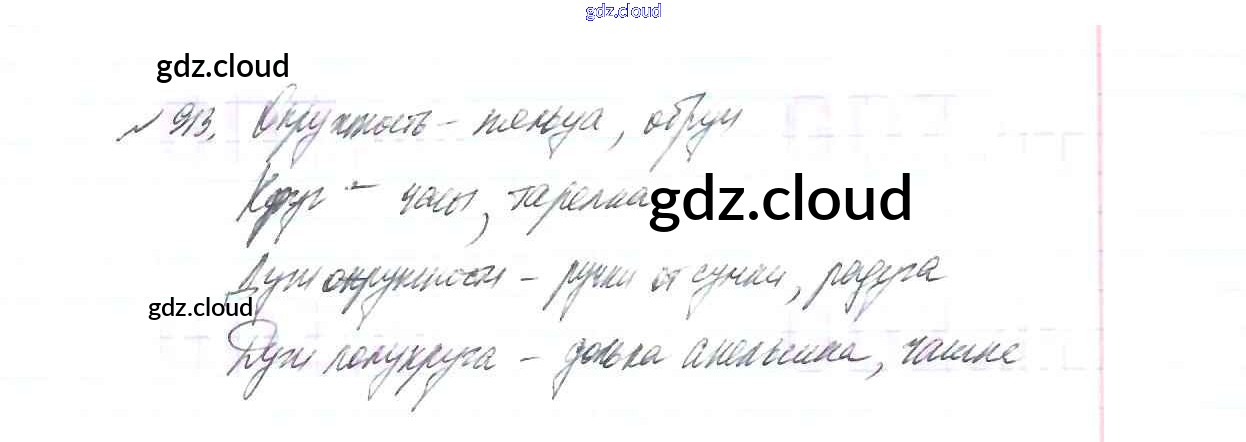 gdz.cloud
gdz.cloud
№ 913. Окружность – кольца, обруч
Круг – часы, тарелка
gdz.cloud
Дуги окружности – ручки от сумки, радуга
gdz.cloud
Дуги полукруга – долька апельсина,